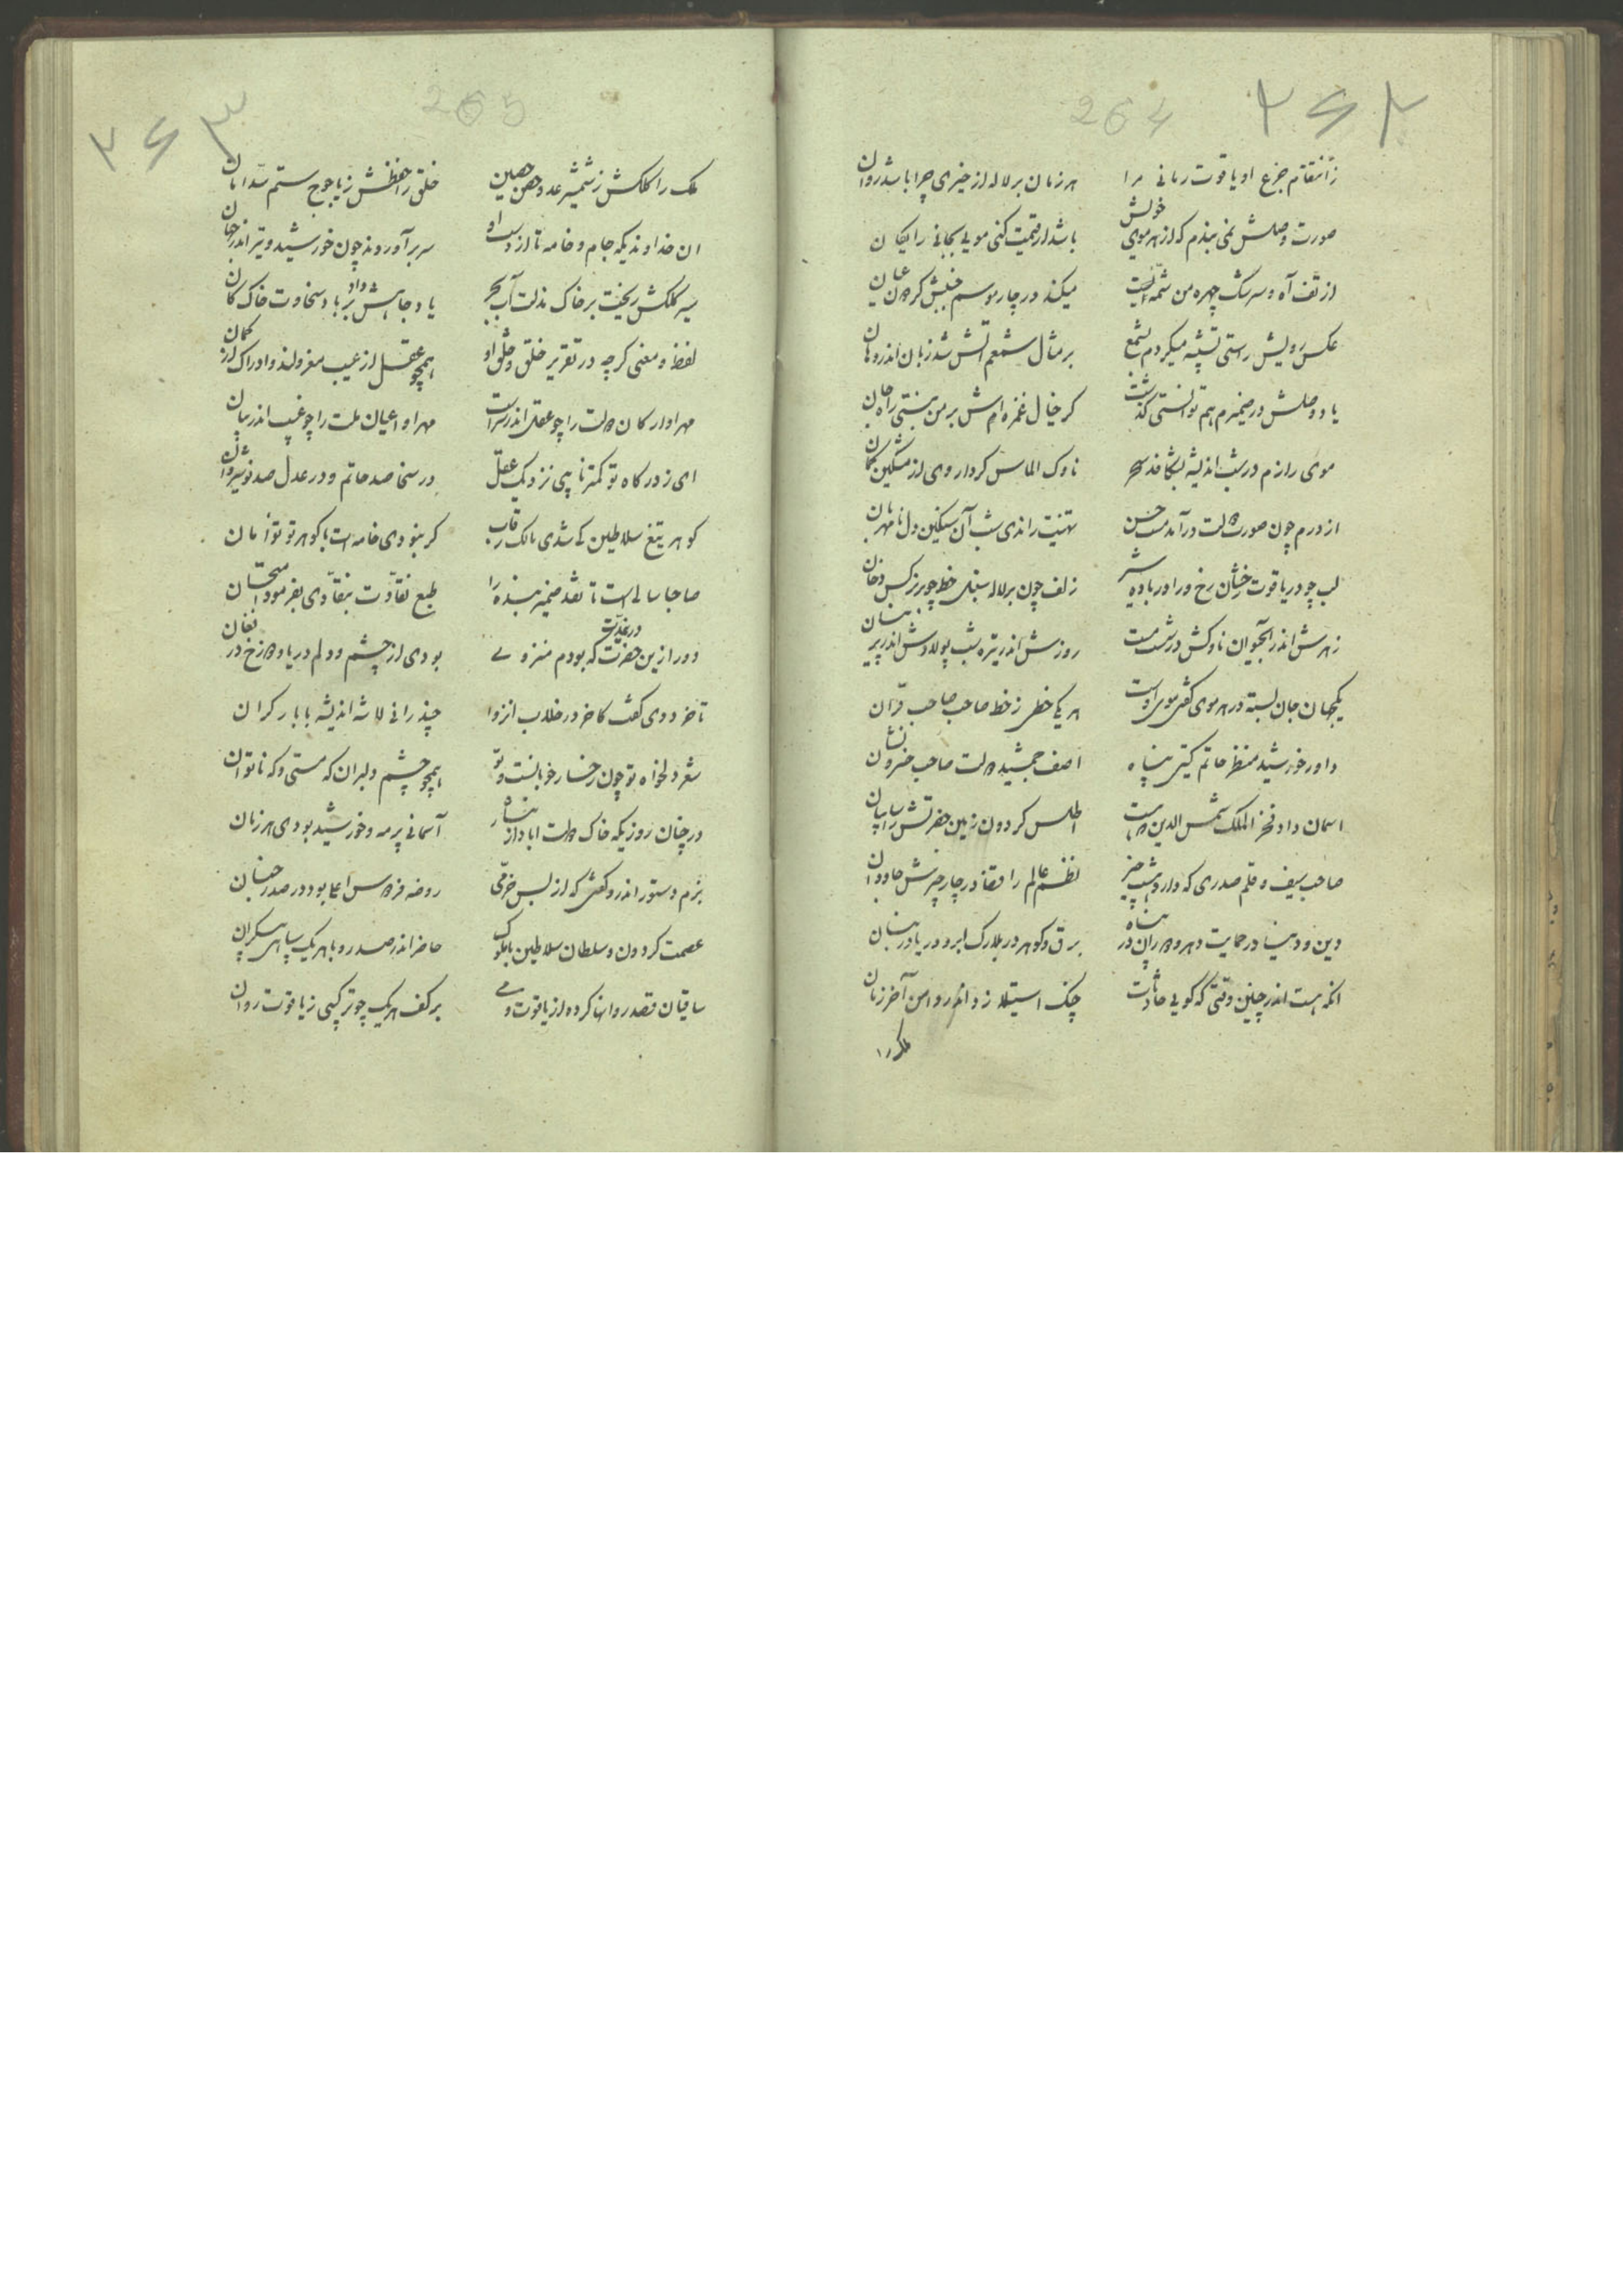 ۲۶۲
264
زانتقام جزع او یاقوت رمانی مرا هر زمان بر لاله از خیری چرا باشد روان
صورت وصلش نمی بندم که از هر موی خویش باشد ار قیمت کنی مویی بجانی رایکان
از تف آه و سرشک چهره من شمه ایست میکند در چار موسم
عکس رویش راستی تشبیه میکردم بشمع بر مثال شمعم اتش شد زبان اندر دهان
یاد وصلش در ضمیرم هم توانستی گذشت کر خیال غمزه اش بر من نبستی راه جان
موی رازم در شب اندیشه بشکافد سحر ناوک الماس کردار وی از مشکین کمان
از درم چون صورت دولت درآمد مست حسن تهنیت راندی شب آن سنکین دل نامهربان
لب چو در یاقوت رخشان رخ ورا در باده زلف چون بر لاله سنبل خط چو بر نرکس دخان
زهرش اندر آبحیوان ناوکش در شست مست روزش اندر تیره شب پولادش اندر
یکجهان جان بسته در هر موی کفتی موی اوست هر یکی خطی ز خط صاحب صاحب قران
داور خورشید منظر حاتم کیتی پناه اصف جمشید دولت صاحب خسرو نشان
اسمان داد فخر الملک شمس الدین اطلس کردون زمین حضرتش را سایبان
صاحب سیف و قلم صدری که دارد نظم عالم را قضا در چار جاودان
دین و دنیا در حمایت دهر و دوران در پناه برق و کوهر در بلارک ابر و دریا در بنان
انکه هست اندر چنین وقتی که کویی حادثات چنک استیلا زد اندر دامن آخر زمان
ملک را
۲۶۳
265
ملک را کلکش ز شمشیر عدو حصن حصین خلق را حفظش ز یاجوج ستم سد امان
ان خداوندیکه جام و خامه تا از دست او سر بر آوردند چون خورشید و تیر اندر جهان
سیر کلکش ریخت بر خاک مذلت آب بحر یاد جاهش داد بر باد سخاوت خاک کان
لفظ و معنی کرچه در تقریر خلق و خلق او همچو عقل از عیب معزولند و ادراک از کمان
مهر او ارکان دولت را چو عقل اندر سرست مهر او اعیان ملت را چو غیب اندر بیان
ای ز درکاه تو کمتر نزدیک عقل در سخا صد حاتم و در عدل صد نوشیروان
کوهر تیغ سلاطین کی شدی مالک رقاب کر نبودی خامه ات با کوهر تو توأمان
صاحبا سالی است تا نقد ضمیر بنده را طبع نقادت بنقادی بفرمود امتحان
دور ازین حضرت که بودم منزوی در غربت بودی از چشم و دلم دریا و دوزخ در فغان
تا خرد دی کفت کاخر در خلاب انزوا چند رانی لاشه اندیشه با بار کران
شعر دلخواه تو چون رخسار خوبانست و تو همچو چشم دلبران که مستی و که ناتوان
در چنان روزیکه خاک دولت اباد از نثار آسمانی پر مه و خورشید بودی هر زمان
بزم دستور اندرو کفتی که از بس خرمی روضه فردوس اعلا بود و در صدر جنان
عصمت کردون و سلطان سلاطین با ملوک حاضر اندر صدر و با هر یک سپاهی بیکران
ساقیان قصد روانها کرده از یاقوت و می بر کف هر یک چو ترکیبی ز یاقوت روان